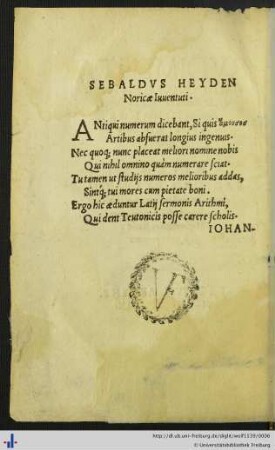 SEBALDVS HEYDEN
Noricæ Iuuentuti.
ANtiqui numerum dicebant, Si quis
Artibus abfuerat longius ingenuis.
Nec quoq; nunc placeat meliori nomine nobis
Qui nihil omnino quàm numerare sciat.
Tu tamen ut studijs numeros melioribus addas,
Sintq; tui mores cum pietate boni.
Ergo hic æduntur Latij sermonis Arithmi,
Qui dent Teutonicis posse carere scholis.
IOHAN-
VF
http://dl.ub.uni-freiburg.de/diglit/wolf1539/0006
© Universitätsbibliothek Freiburg